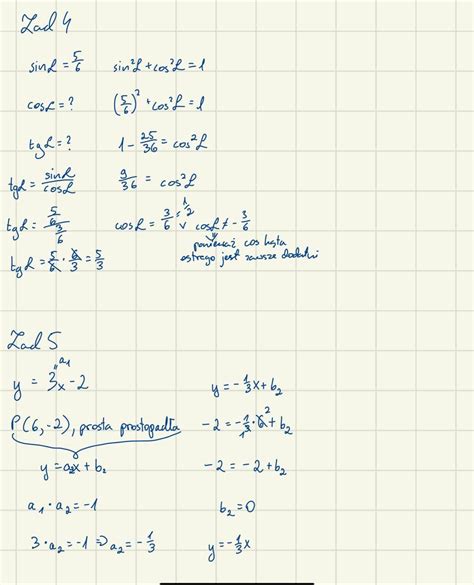 Zad 4
sinα = 5/6
sin²α + cos²α = 1
cosα = ?
(5/6)² + cos²α = 1
tgα = ?
1 - 25/36 = cos²α
tgα = sinα/cosα
9/36 = cos²α
tgα = 5/6 / 3/6
cosα = 3/6 = 1/2 ∨ cosα ≠ - 3/6
ponieważ cos kąta
ostrego jest zawsze dodatni
tgα = 5/6 · 6/3 = 5/3
Zad 5
a₁
y = 3x - 2
y = -1/3x + b₂
P(6, -2), prosta prostopadła
-2 = -1/3 · 6 + b₂
1 2
y = a₂x + b₂
-2 = -2 + b₂
a₁ · a₂ = -1
b₂ = 0
3 · a₂ = -1 => a₂ = -1/3
y = -1/3x